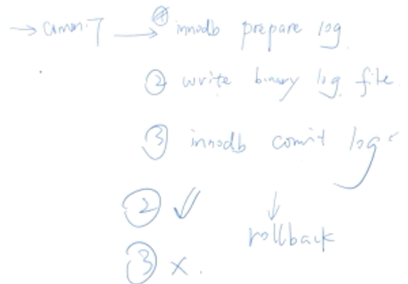 → commit → ① innodb prepare log
② write binary log file
③ innodb commit log
② ✓ ↓
rollback
③ ×.